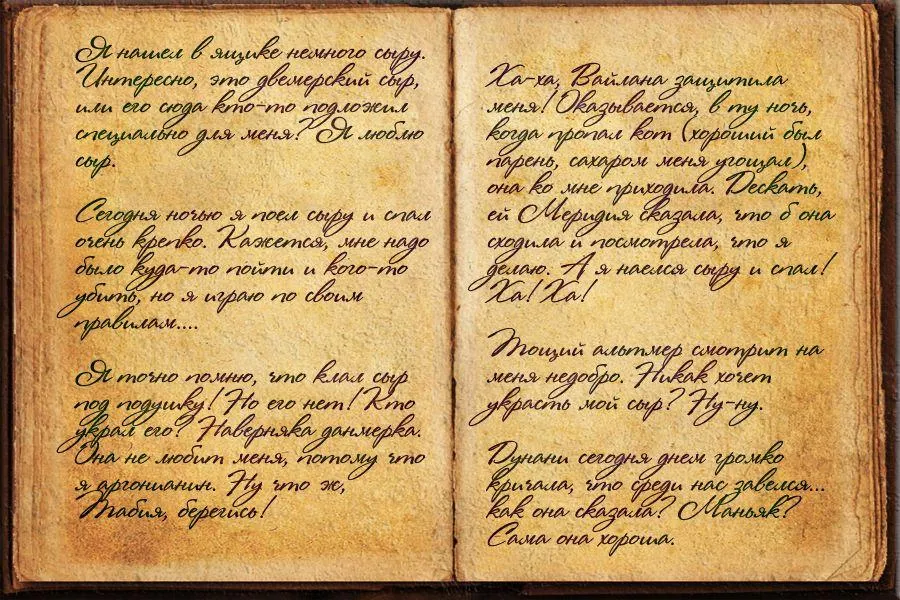 Я нашел в ящике немного сыру.
Интересно, это двемерский сыр,
или его сюда кто-то подложил
специально для меня? Я люблю
сыр.
Сегодня ночью я поел сыру и спал
очень крепко. Кажется, мне надо
было куда-то пойти и кого-то
убить, но я играю по своим
правилам....
Я точно помню, что клал сыр
под подушку! Но его нет! Кто
украл его? Наверняка данмерка.
Она не любит меня, потому что
я аргонианин. Ну что ж,
Табия, берегись!
Ха-ха, Вайлана защитила
меня! Оказывается, в ту ночь,
когда пропал кот (хороший был
парень, сахаром меня угощал),
она ко мне приходила. Дескать,
ей Меридия сказала, что б она
сходила и посмотрела, что я
делаю. А я наелся сыру и спал!
Ха! Ха!
Тощий альтмер смотрит на
меня недобро. Никак хочет
украсть мой сыр? Ну-ну.
Дунани сегодня днем громко
кричала, что среди нас завелся...
как она сказала? Маньяк?
Сама она хороша.